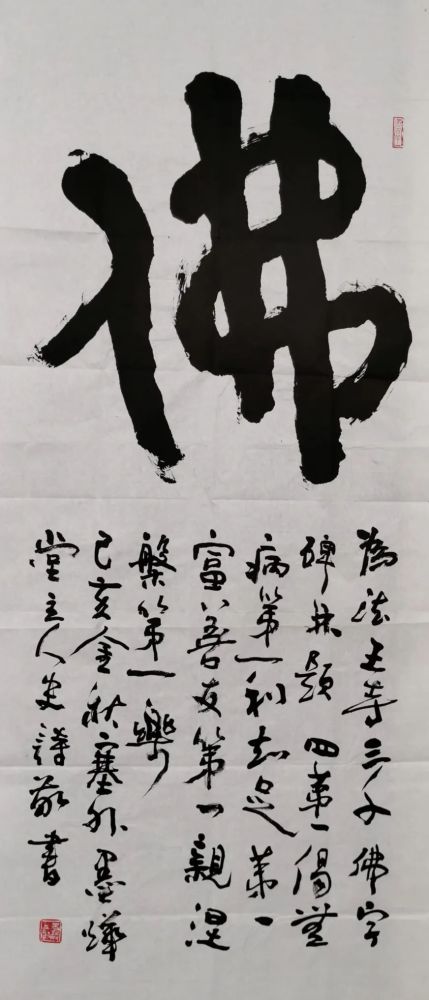 佛
為法王寺三千佛字
碑林題 四第一偈 無
病第一利 知足第一
富 善友第一親 涅
槃第一樂
己亥金秋塞外墨
堂主人史譯敬書